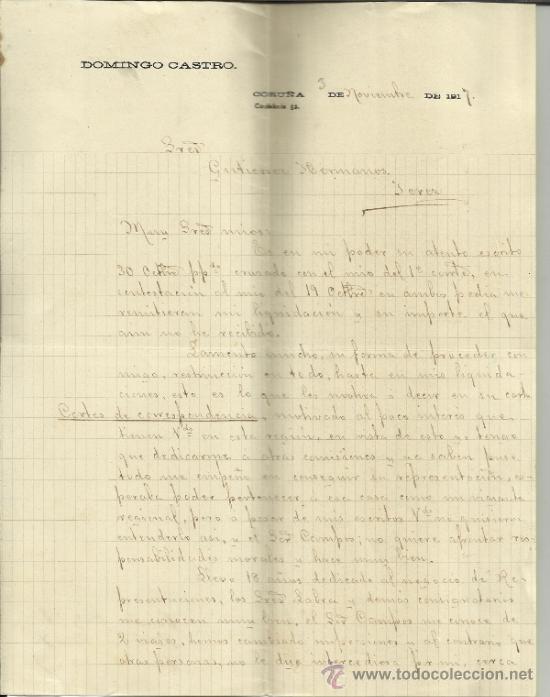 DOMINGO CASTRO.
CORUÑA 3 DE Noviembre DE 1917.
Cordelería 52.
Sres
Gutierrez Hermanos
Jerez
Muy Sres mios:
Es en mi poder su atento escrito
30 Octbre pp.do cruzado con el mio del 1º corrte, en
contestación al mio del 19 Octbre en ambos pedia me
remitieran mi liquidación y su importe el que
aun no he recibido.
Lamento mucho, su forma de proceder con
migo, restricción en todo, hasta en mis liquida-
ciones, esto es lo que les motiva a decir en su carta
Cortos de correspondencia, motivado al poco interes que
tienen Vds en esta región, en vista de esto y tengo
que dedicarme a otras comisiones y ya saben puse
todo mi empeño en conseguir su representación, es-
peraba poder pertenecer a esa casa como un viajante
regional, pero a pesar de mis escritos Vds no quisieron
entenderlo asi, y el Sor Campos; no quiere afrontar res-
ponsabilidades morales y hace muy bien.
Llevo 18 años dedicado al negocio de Re-
presentaciones, los Sres Labra y demás consignatarios
me conocen muy bien, el Sr Campos me conoce de
2 viajes, hemos cambiado impresiones y al contrario que
otras personas, no le dije intercediera por mi, cerca
todocoleccion.net